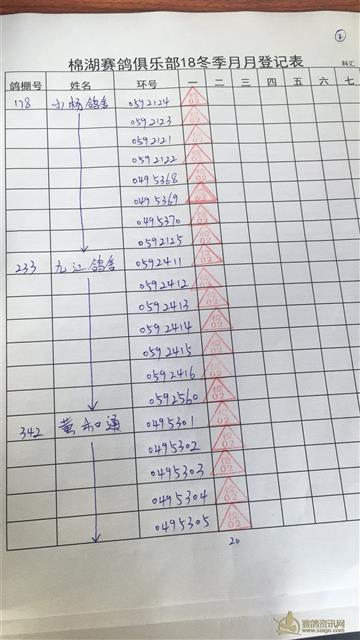 ②
棉湖赛鸽俱乐部18冬季月月登记表
科汇
鸽棚号 姓名 环号 一 二 三 四 五 六 七
178 小杨鸽舍 0592124
0592123
0592121
0592122
0495368
0495369
0495370
0592125
233 九江鸽舍 0592411
0592412
0592413
0592414
0592415
0592416
0592560
342 黄和通 0495301
0495302
0495303
0495304
0495305
20
赛鸽资讯网
www.saige.com